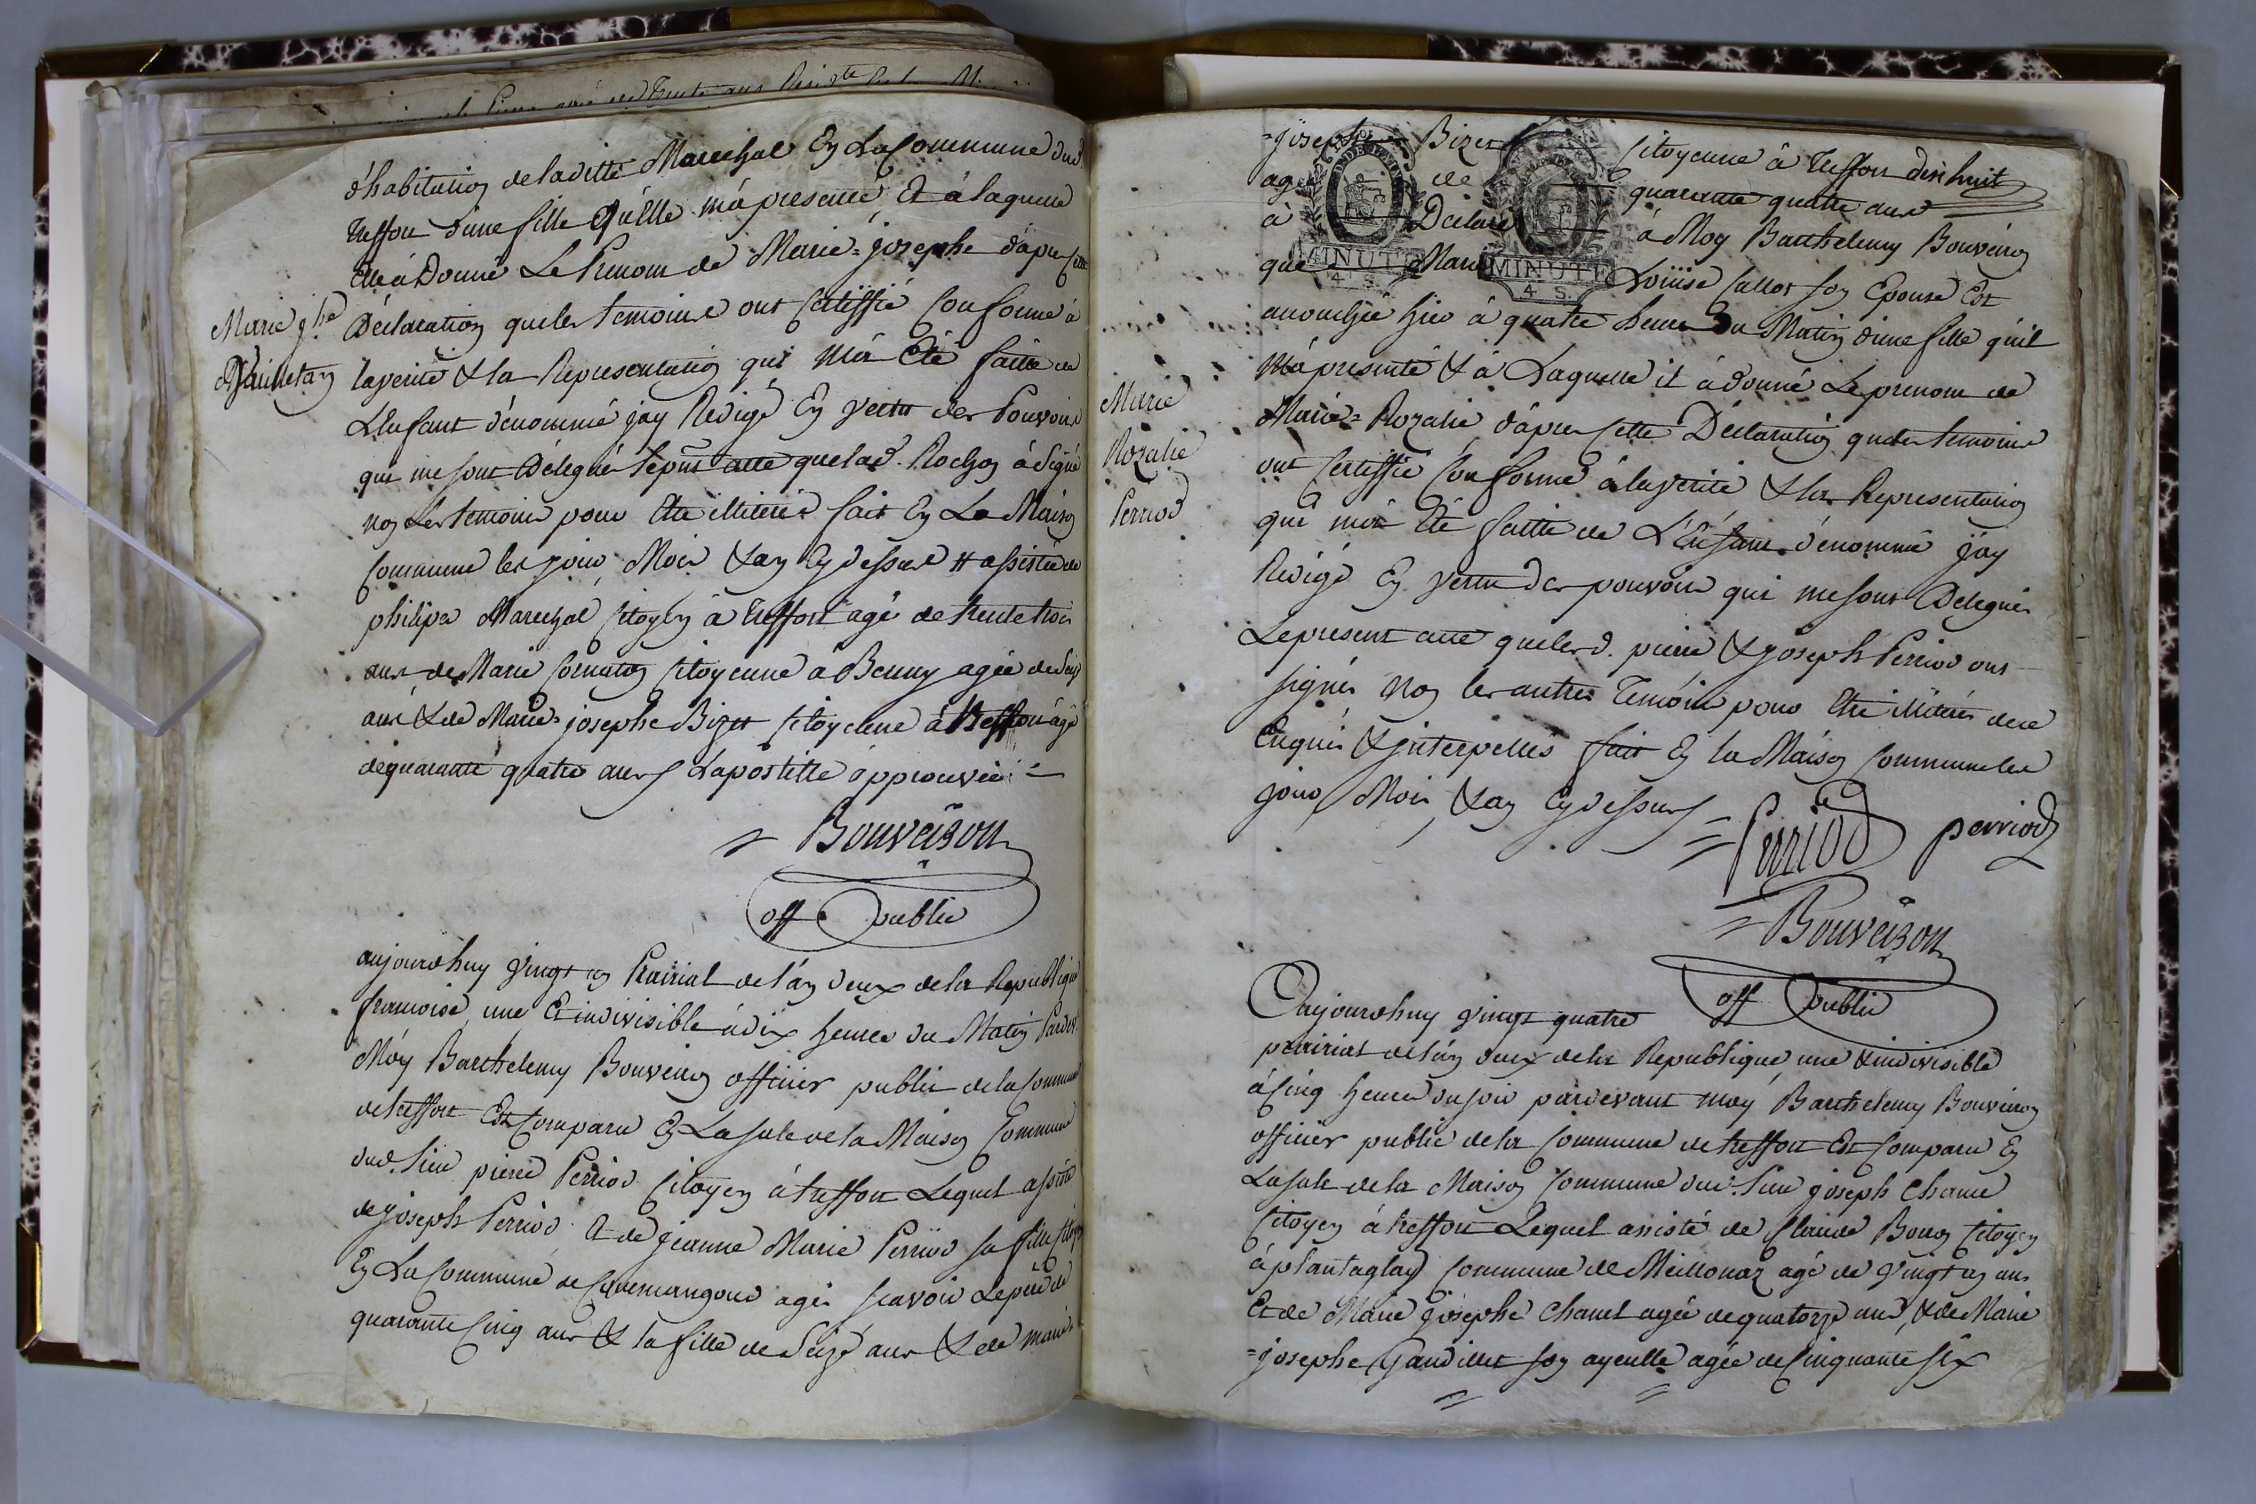 d'habitation de laditte Marechal En La Commune dud.
treffort d'une fille Quelle m'a presentée Et à laquelle
elle à Donné Le Prenom de Marie=josephe d'après cette
Marie jhe
Déclaration que les temoins ont Certiffié Conforme à
la verité & la Representation qui M'a Eté faitte de
L'Enfant dénommé jay Redigé En vertu des Pouvoirs
qui me sont Délegués le pnt acte que lad. Rochon à signé
non Les temoins pour Etre illiterés fait En La Maison
Commune les jour, Mois & an Cy dessus # assistée de
philipe Marechal Citoyen à treffort agé de trente trois
ans de Marie Cornaton Citoyenne à Benny agée de
ans & de Marie=josephe Bizet Citoyenne à treffort agé
de quarante quatre ans L'apostille approuvée
Bouveïron
off public
aujourdhuy vingt un Prairial de l'an deux de la Republique
francoise, une Et indivisible à dix heures du Matin Pardevt
Moy Barthelemy Bouveiron officier public de la Commune
de treffort Est Comparu En La sale de la Maison Commune
dud. lieu pierre Perriod Citoyen à treffort Lequel assisté
de joseph Perriod & de jeanne Marie Perriod sa fille
En La Commune de Cuvemangoux agés scavoir Le pere de
quarante Cinq ans & la fille de Seize ans & de marie
=josephe Bizet Citoyenne à treffort
agé de quarante quatre ans
à Déclaré à Moy Barthelemy Bouveiron
que Marie Loüise Callot son Epouse Est
MINUTE
4 S.
MINUTE
4 S.
accouchée hier à quatre heures Du Matin d'une fille qu'il
M'à presenté & à Laquelle il à donné Le prenom de
Marie
Rozalie
Perriod
Marie=Rozalie d'après Cette Déclaration que les temoins
ont Certiffié Conforme à la verité & la Representation
qui m'a Eté faitte de L'Enfant dénommé jay
Redigé En vertu des pouvoirs qui me sont Delegués
Le present acte que lesd. pierre & joseph Perriod ont
signés Non les autres Temoins pour Etre illiterés de ce
Enquis & interpellés fait En la Maison Commune les
jour, Mois, & an Cy dessus
Perriod perriod
Bouveïron
off public
Aujourdhuy vingt quatre
prairial de l'an deux de la Republique, une & indivisible
à Cinq heures du soir pardevant moy Barthelemy Bouveiron
officier public de la Commune de treffort Est Comparu En
La sale de la Maison Commune dud. lieu joseph Chanel
Citoyen à treffort Lequel assisté de Claude Bouon Citoyen
à plantaglay Commune de Meillonaz agé de vingt un ans
Et de Marie josephe Chanel agée de quatorze ans, & de Marie
=josephe Gaudillet son ayeulle agée de Cinquante six